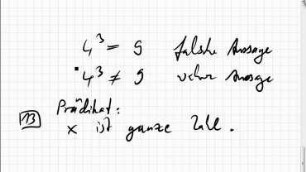 4³ = 9 falsche Aussage
4³ ≠ 9 wahre Aussage
Prädikat:
13 x ist ganze Zahl.